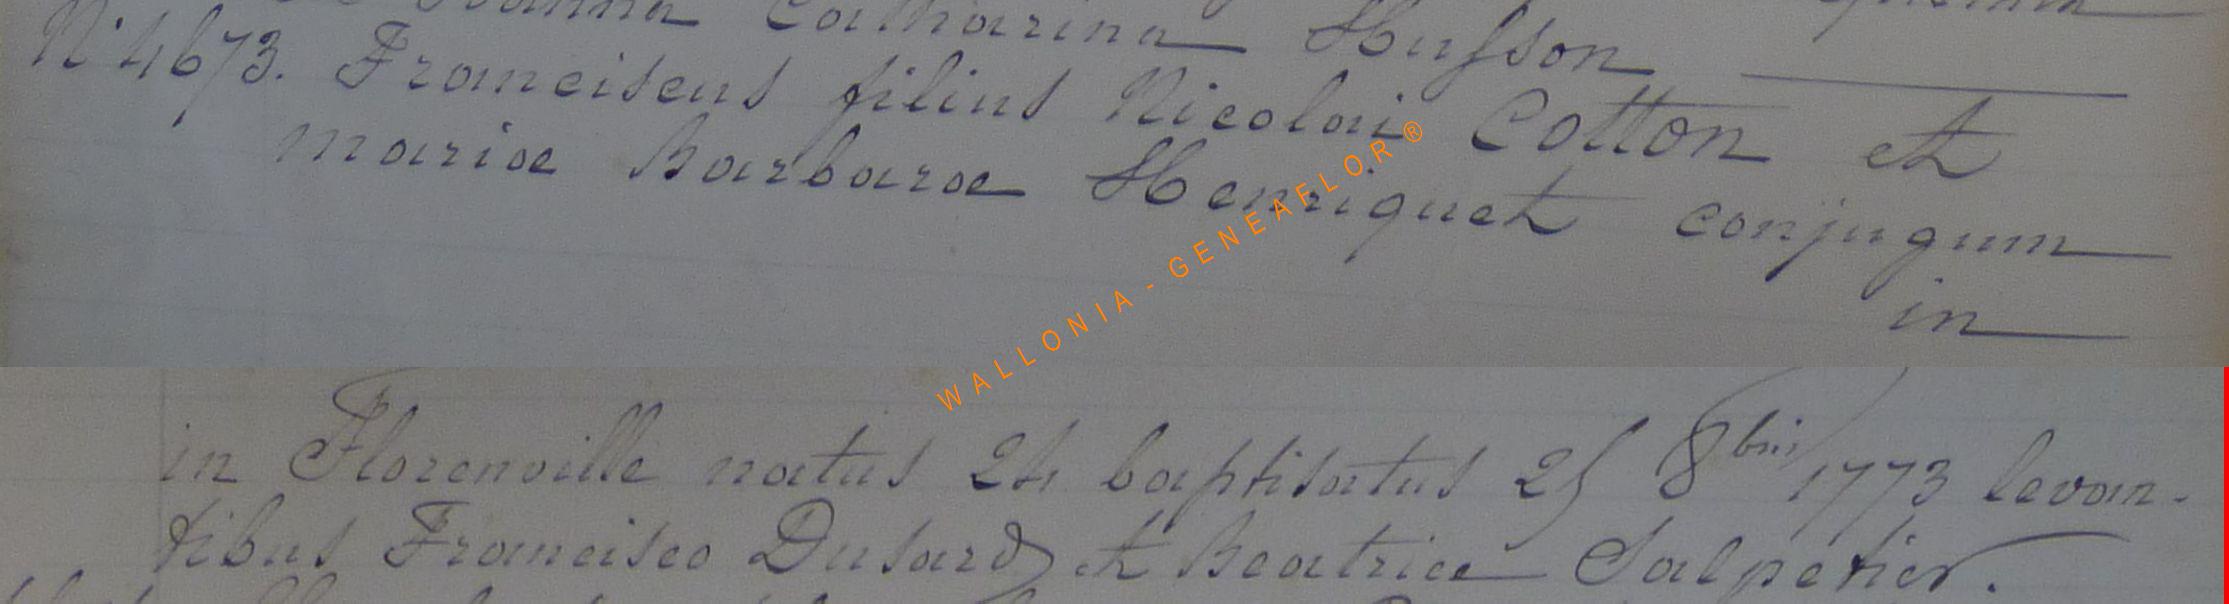 Joanna Catharina Husson
N° 4673. Franciscus filius Nicolai Cotton et
mariae Barbarae Henriquet conjugum
in
WALLONIA - GENEAFLOR®
in Florenville natus 24 baptisatus 25 8bris 1773 levan-
tibus Francisco Dusard et Beatrice Salpetier.